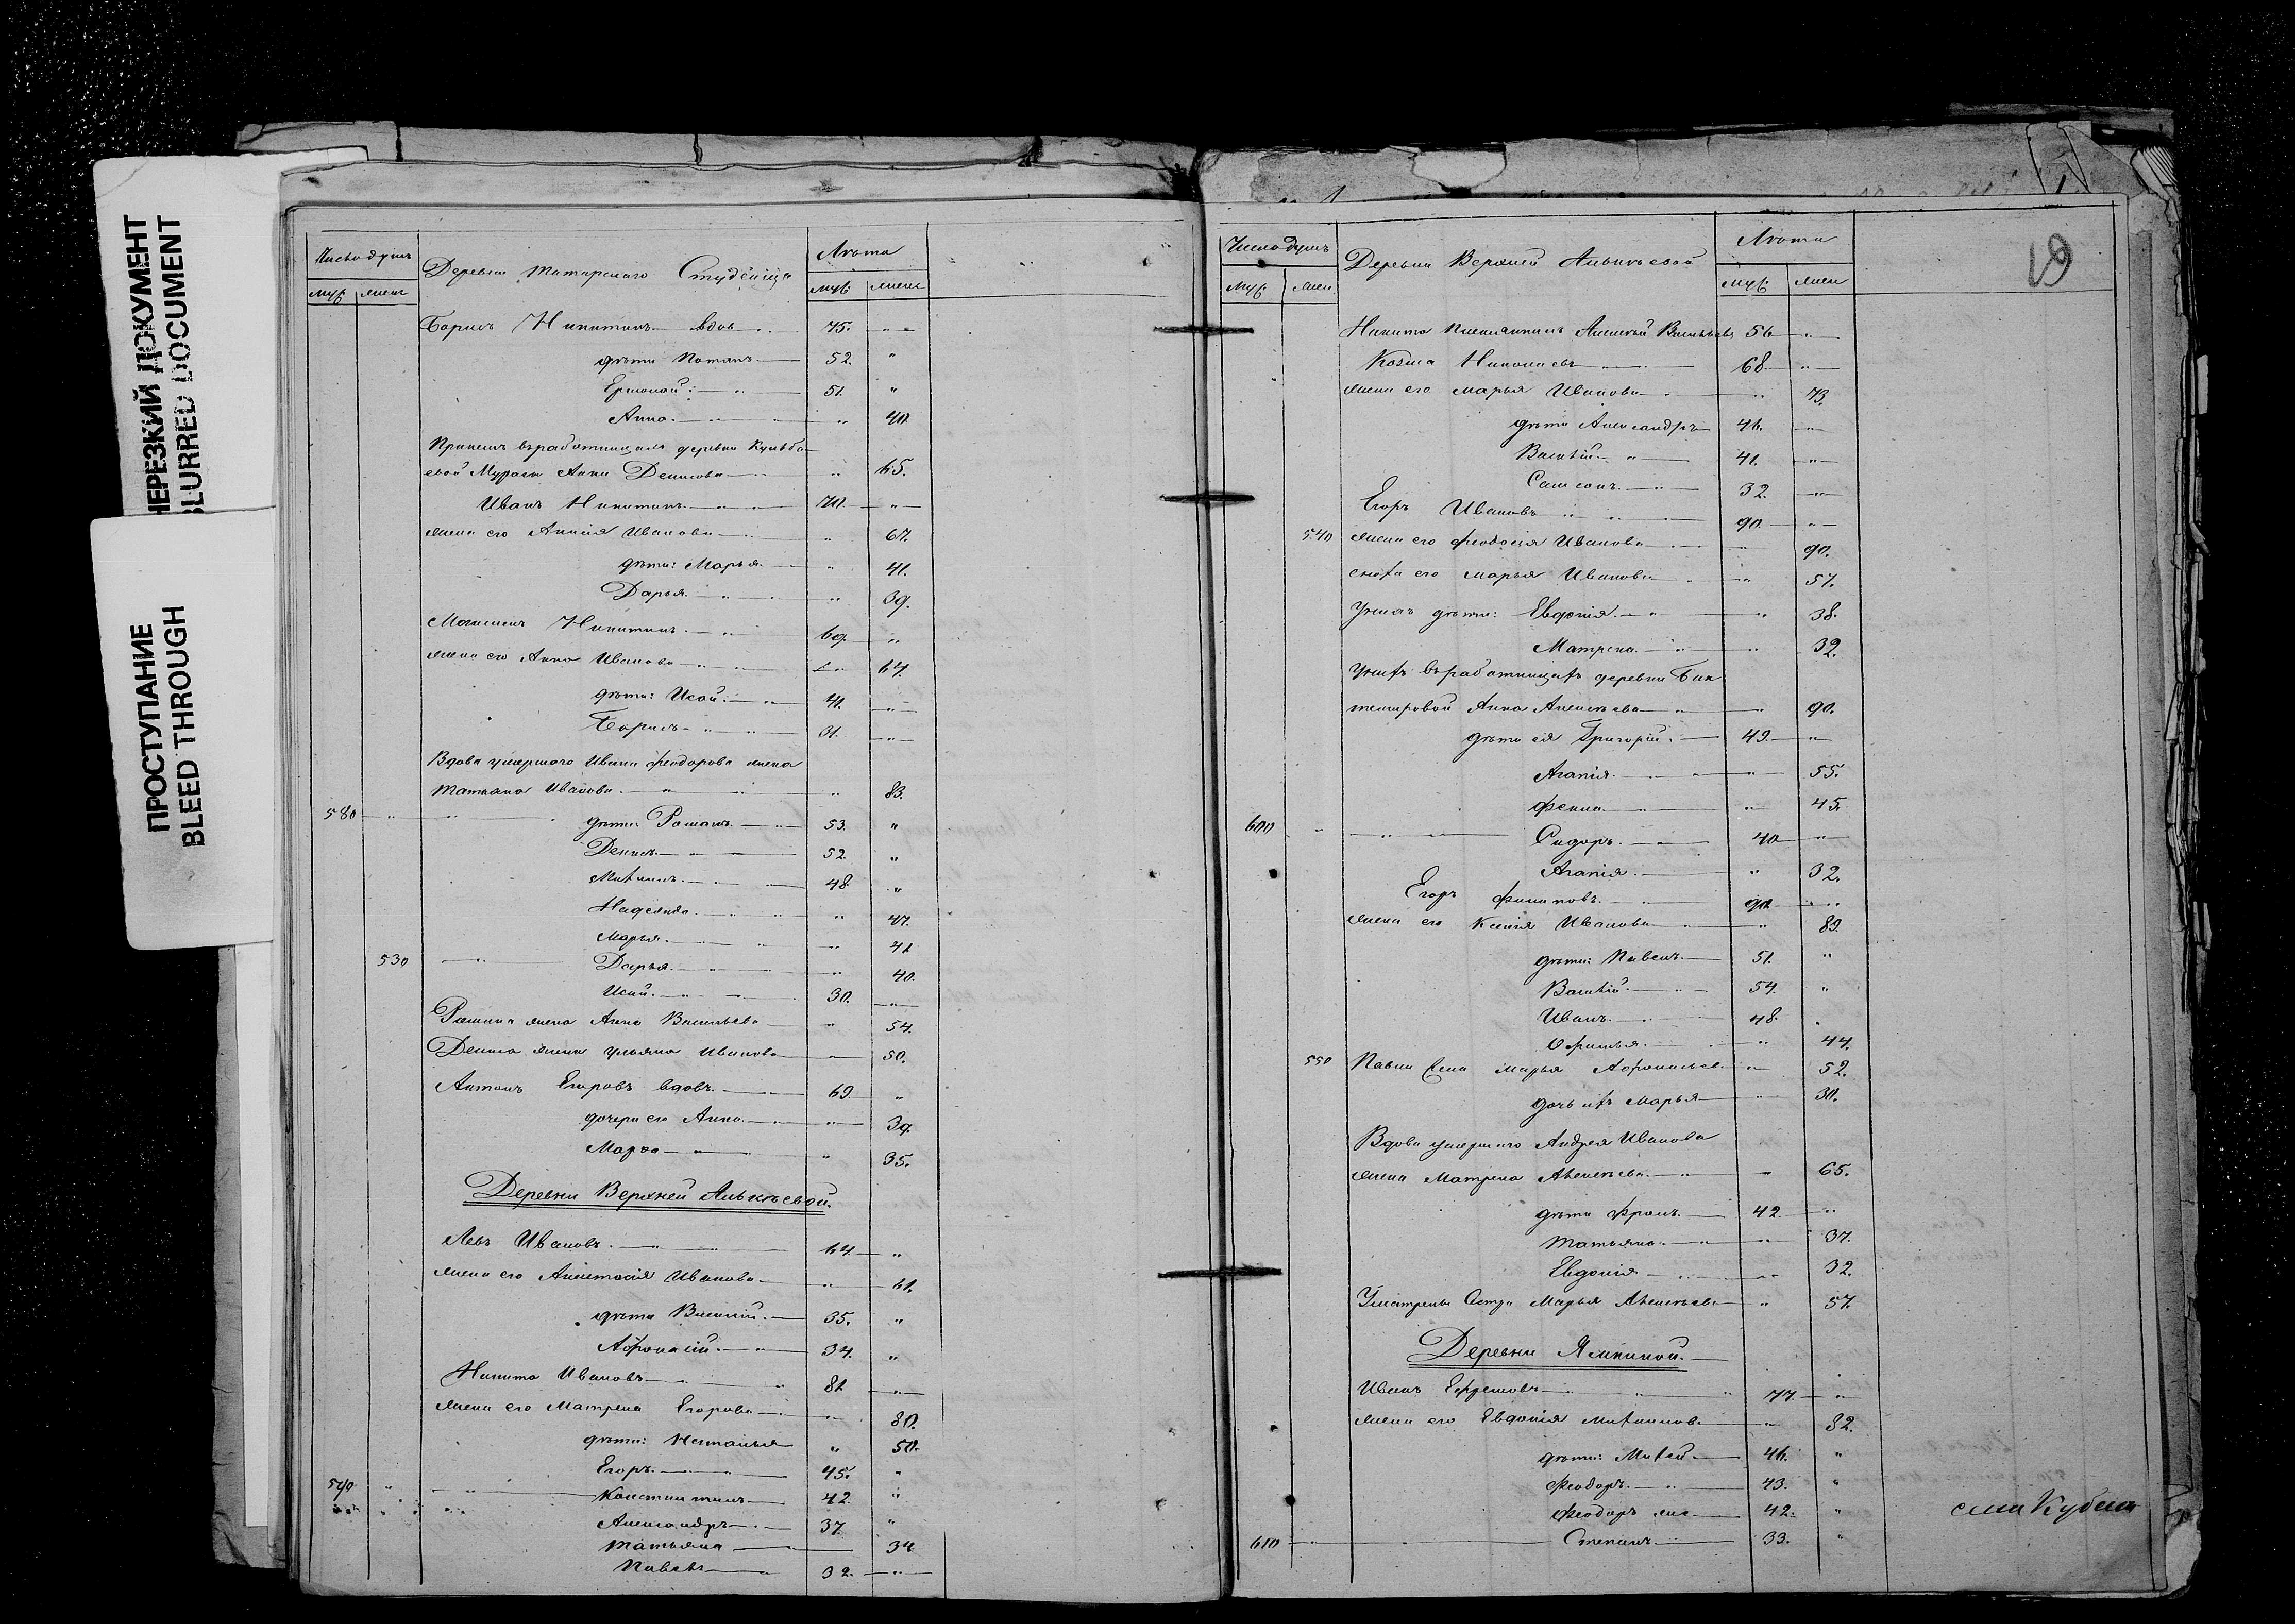 НЕРЕЗКИЙ ДОКУМЕНТ
BLURRED DOCUMENT
ПРОСТУПАНИЕ
BLEED THROUGH
Число душъ Деревни Татарского Студёнца Лѣта
муж жен муж жен
Борисъ Никитинъ вдов 75.
дѣти Потапъ 52.
Ермолай: 51.
Анна. 40.
Принихъ въ работницахъ деревни Кульба
евой Анна Денисова 65.
Иванъ Никитинъ. 70.
жена его Анисія Иванова 67.
дѣти: Марья. 41.
Дарья. 39.
Никитинъ. 69.
жена его Анна Иванова 64.
дѣти: Исай. 41.
Борисъ 31.
Вдова умершаго Ивана Феодорова жена
Татьяна Иванова. 83.
580 дѣти: Романъ. 53.
Денисъ. 52.
Михаилъ. 48.
Надежда. 47.
Марья. 41
530 Дарья. 40.
Исай. 30.
Романа жена Анна Васильева 54.
Дениса жена Ульяна Иванова 50.
Антонъ Егоровъ вдовъ. 69.
дочери его Анна. 39.
Марѳа 35.
Деревни Верхней Алькѣевой.
Левъ Ивановъ. 64.
жена его Анастасія Иванова 61.
дѣти Василий. 35.
Афонасій. 34.
Никита Ивановъ 81.
жена его Матрена Егорова 80.
дѣти: Наталья 50.
Егоръ. 45.
590 Констинтинъ 42.
Александръ 37.
Татьяна 34
Павелъ 32.
Число душъ Деревни Верхней Алькѣевой Лѣта
муж. жен муж. жен
19
Никита племянникъ Алексѣй Васильевъ 56
Козма Николаевъ 68
жена его Марья Иванова 73.
дѣти Александръ 46.
Василій 41.
Самсонъ. 32.
Егоръ Ивановъ 90.
540 жена его Феодосія Иванова 90.
сноха его Марья Иванова 57.
У нихъ дѣти: Евдокія. 38.
Матрена. 32.
У нихъ въ работницахъ деревни Бик
темировой Анна Алексѣева 90.
дѣти ея Григорій. 49.
Агапія. 55.
Фекла. 45.
600 Сидоръ. 40
Агапія. 32.
Егоръ Филиповъ. 90.
жена его Ксенія Иванова 89.
дѣти: Павелъ. 51.
Василій. 54.
Иванъ. 48.
44.
550 Павла жена Марья Афонасьева 52.
дочь ихъ Марья 30.
Вдова умершаго Андрея Иванова
жена Матрена Алексѣева. 65.
дѣти Фролъ. 42
Татьяна. 37.
Евдокія 32.
У Матрены сестра Марья Алексѣева 57.
Деревни Ямкиной.
Иванъ Ефремовъ 77.
жена его Евдокія Михаилова 82.
дѣти: Михей. 46.
Феодоръ. 43.
Феодоръ же 42.
610 Степанъ 33.